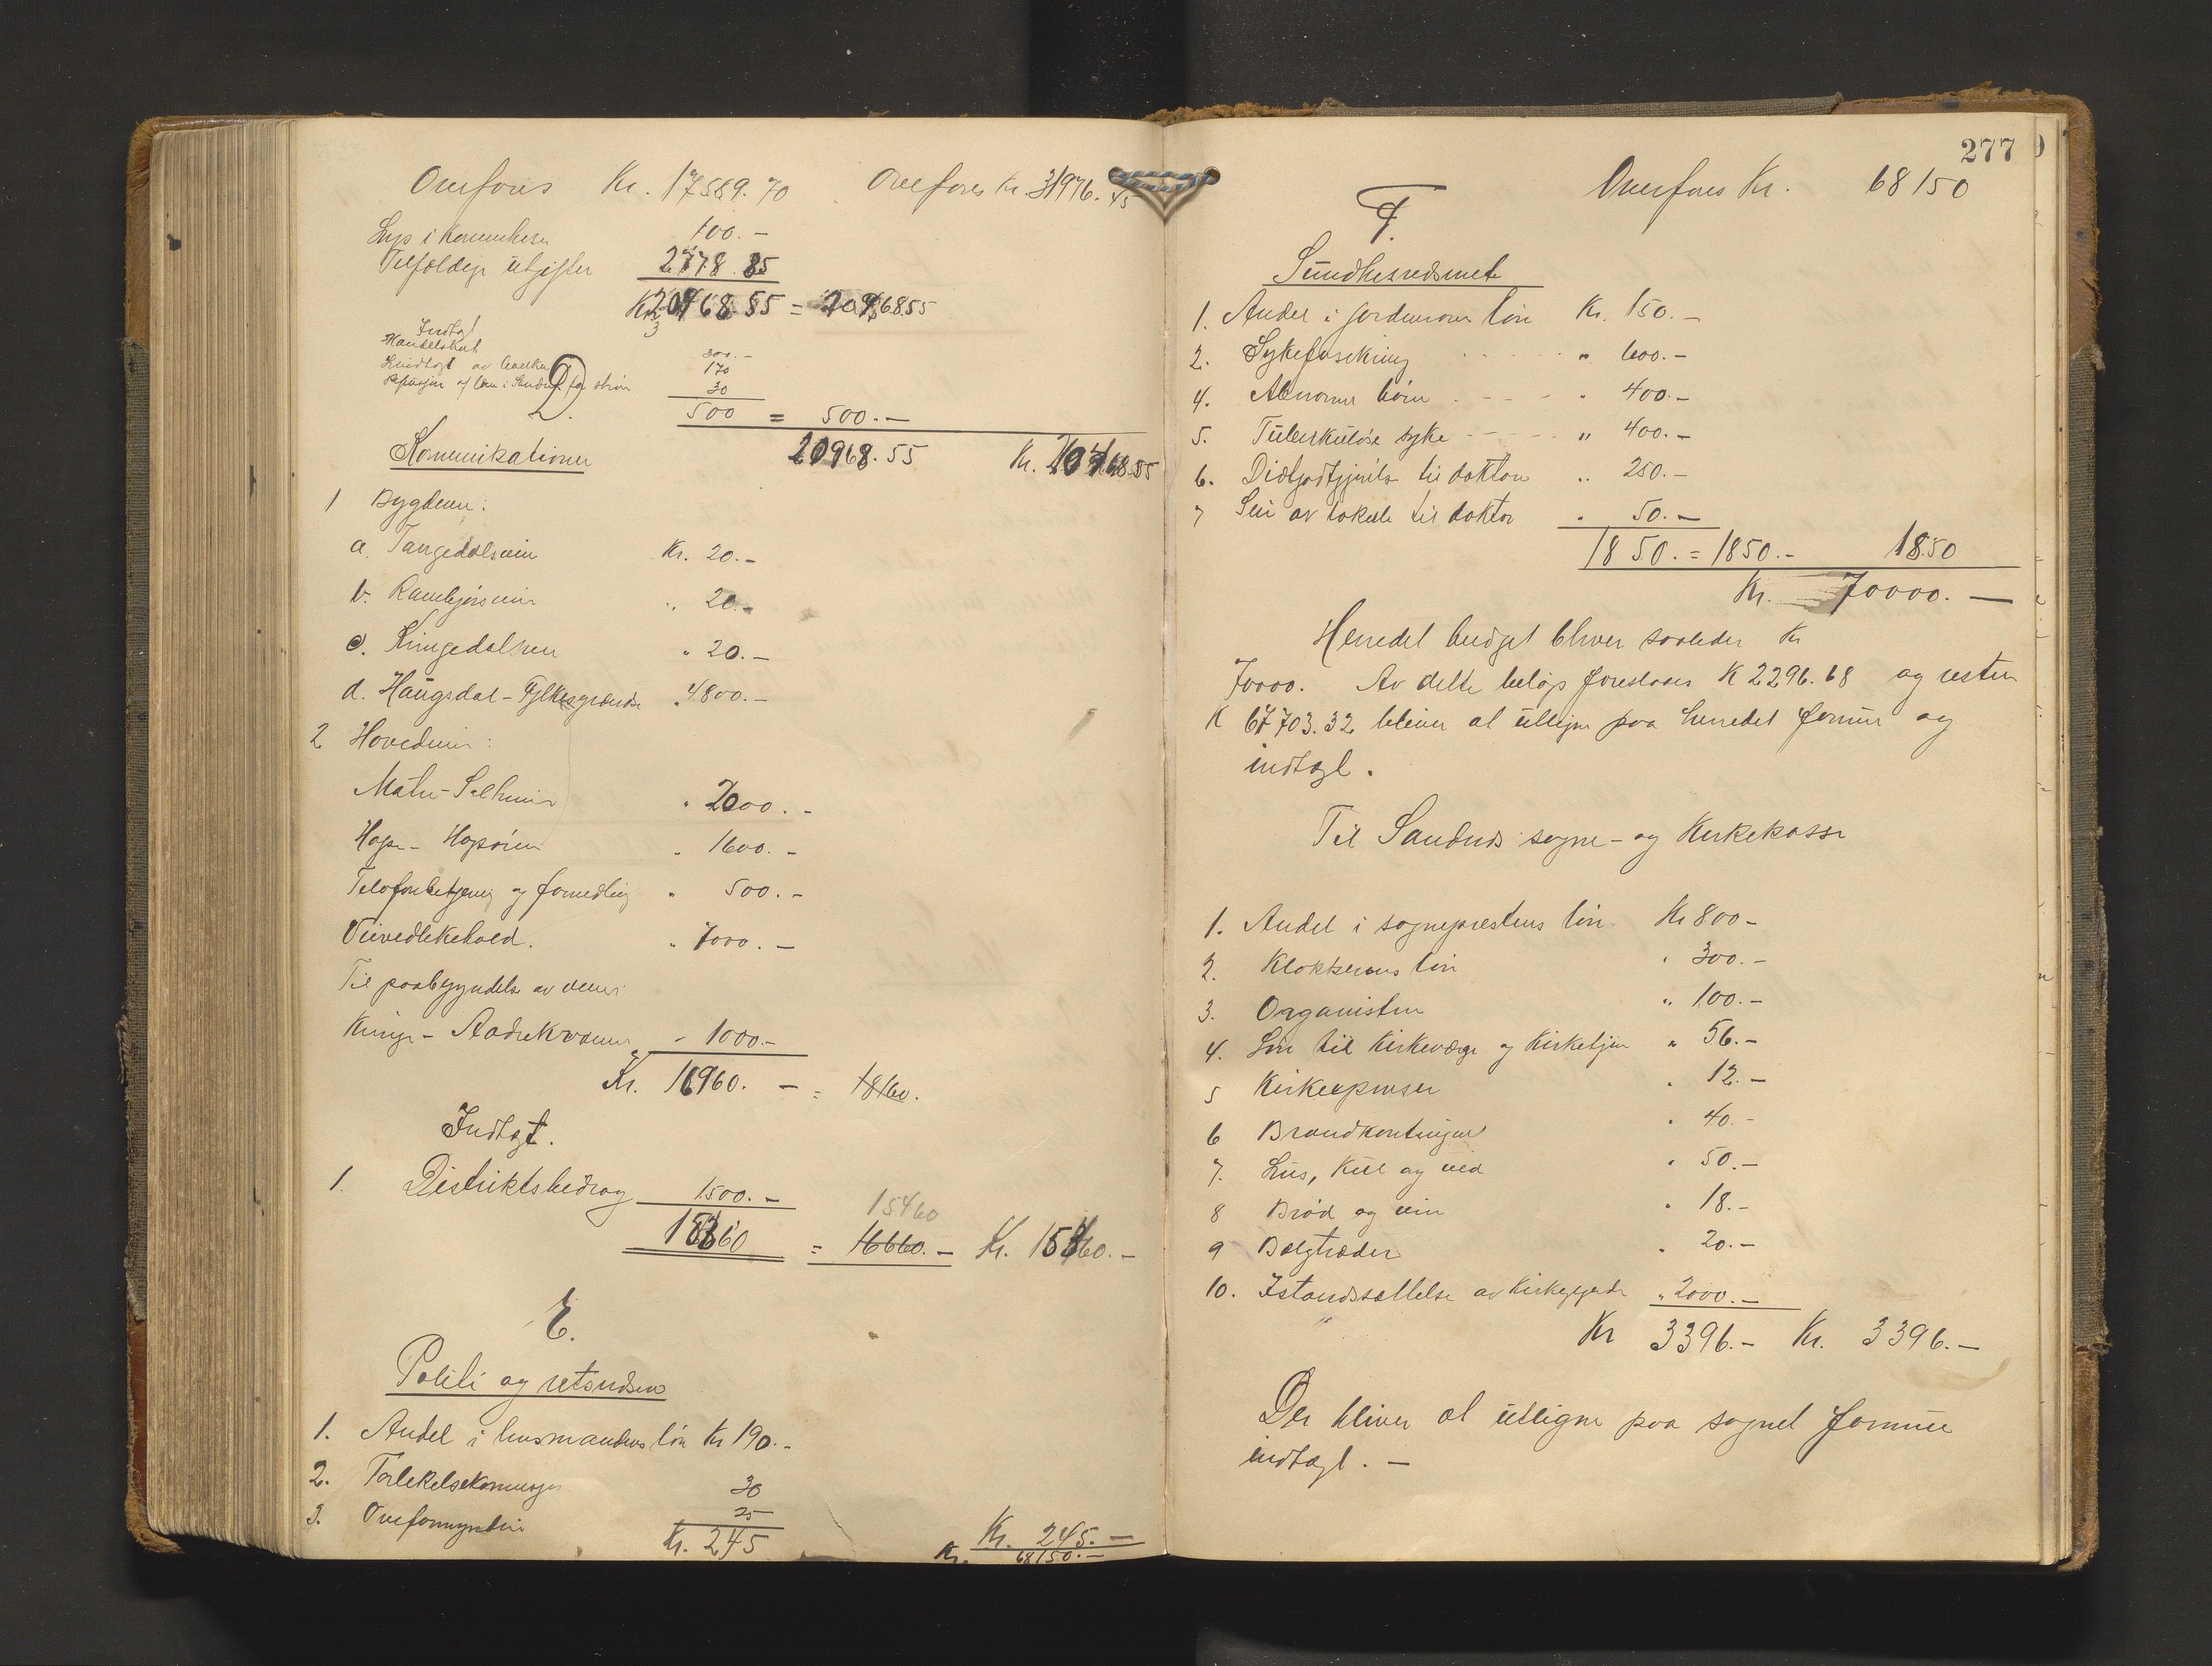 Overføres Kr. 17589.70 Overføres Kr. 31976.45
Lys i 100.-
Tilfældige utgifter 2778.85
20468.55
Indtægt
Handelskat 300.-
170
30
500 = 500.-
D.
20968.55 Kr.
Kommunikationer
1 Bygdevei:
a. Tangedalsvein Kr. 20.-
b. Rambjørsvein " 20.-
c. Kringedalsvei " 20.-
d. Haugsdal-Fylkesgrændse " 4800.-
2 Hovedvei:
Matre-Selhvei " 2000.-
Hope-Hopsøien " 1600.-
Telefonbetjening og formedling " 500.-
Veivedlikehold. " 7000.-
Til paabegyndelse av veien:
Kringe-Aadrekvamme - 1000.-
Kr. 16960.- = 18160.
Indtægt.
1. Distriktsbedrag 1500.-
15460
= 16660.- Kr. 15460.-
E.
Politi og retsvæsen
1. Andel i lensmandens løn Kr 190.-
2. Forlikelseskommisjon 30
3. Overformynderi 25
Kr. 245 Kr. 245.-
Kr. 68150.-
277
Overføres Kr. 68150
F.
Sundhetsvæsenet
1. Andel i jordmorens løn Kr. 150.-
2. Sykeforsikring " 600.-
4. Abnorme børn " 400.-
5. Tuberkuløse syke " 400.-
6. til doktoren " 250.-
7 Leie av lokale til doktor " 50.-
1850. = 1850.- 1850
Kr. 70000.-
Herredets budget bliver saaledes Kr
70000. Av dette beløp foreslaaes K 2296.68 og resten
K 67703.32 bliver at utligne paa herredets formue og
indtægt.
Til Sandnes sogne- og Kirkekasse
1. Andel i sogneprestens løn Kr 800-
2. Klokkerens løn " 300.-
3. Organisten " 100.-
4. Løn til Kirkeværge og Kirketjener " 56.-
5 Kirkeepenser " 12.-
6 Brandkontingent " 40.-
7. Lys, Kul og ved " 50.-
8 Brød og vin " 18.-
9 Belgtræder " 20.-
10. Istandsættelse av Kirkegaarde " 2000.-
Kr 3396.- Kr. 3396.-
Der bliver at utligne paa sognet formue
indtægt.-